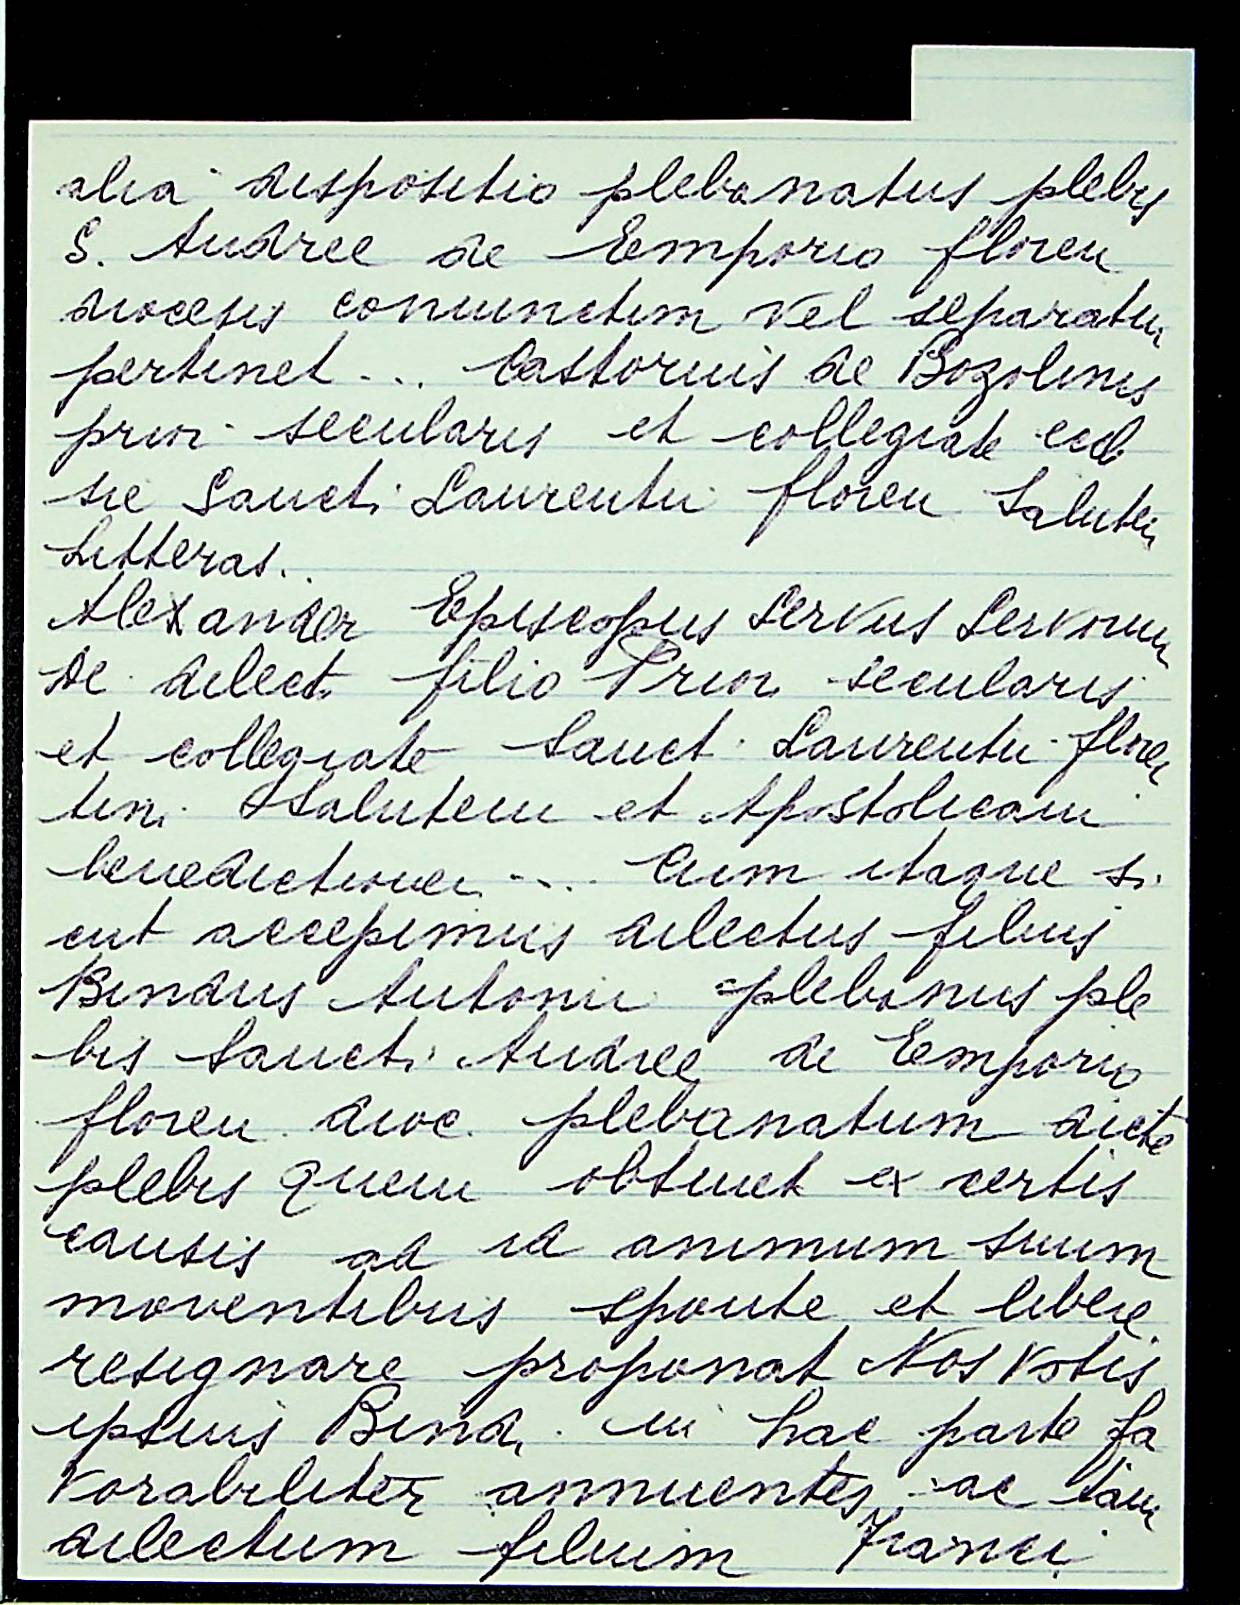 alia dispositio plebanatus plebis
S. Andree de Emporio floren
diocesis coniunctim vel separatim
pertinet ... Castorinis de Bozolinis
prior secularis et collegiate eccl
sie Sancti Laurentii floren Salutem
Litteras.
Alexander Episcopus Servus Servorum
De dilect. filio Prior secularis
et collegiate Sanct. Laurentii floren
tin. Salutem et Apostolicam
benedictionem .... Cum itaque si
cut accepimus dilectus filius
Bindus Antonii plebanus ple
bis Sancti Andree de Emporio
floren. dioc. plebanatum dicte
plebis quem obtinet ex certis
causis ad id animum suum
moventibus sponte et libere
resignare proponat Nos votis
ipsius Bind. in hac parte fa
vorabiliter annuentes, ac tam
dilectum filium Franci